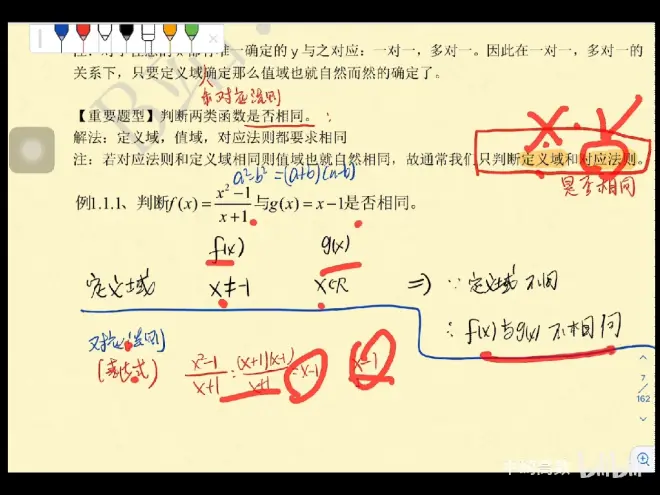 确定的 y 与之对应：一对一，多对一。因此在一对一，多对一的
关系下，只要定义域确定那么值域也就自然而然的确定了。
和对应法则
【重要题型】判断两类函数是否相同。
解法：定义域，值域，对应法则都要求相同
注：若对应法则和定义域相同则值域也就自然相同，故通常我们只判断定义域和对应法则。
是否相同
a²-b²=(a+b)(a-b)
例1.1.1、判断f(x)=x²-1/x+1与g(x)=x-1是否相同。
f(x) g(x)
定义域 x≠-1 x∈R ⇒ ∵定义域不同
∴f(x)与g(x)不相同
对应法则
(表达式) x²-1/x+1=(x+1)(x-1)/x+1=x-1 x-1
7
/
162
bilibili